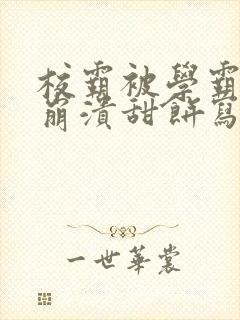 校霸被學霸
崩潰甜餅寫
一世華裳